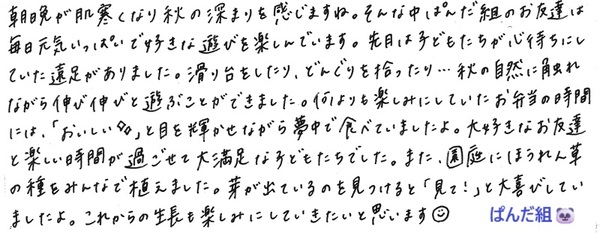 朝晩が肌寒くなり秋の深まりを感じますね。そんな中ぱんだ組のお友達は
毎日元気いっぱいで好きな遊びを楽しんでいます。先月は子どもたちが心待ちにし
ていた遠足がありました。滑り台をしたり、どんぐりを拾ったり…秋の自然に触れ
ながら伸び伸びと遊ぶことができました。何よりも楽しみにしていたお弁当の時間
には、「おいしい♡」と目を輝かせながら夢中で食べていましたよ。大好きなお友達
と楽しい時間が過ごせて大満足な子どもたちでした。また、園庭にほうれん草
の種をみんなで植えました。芽が出ているのを見つけると「見て！」と大喜びしてい
ましたよ。これからの生長も楽しみにしていきたいと思います☺ ぱんだ組🐼